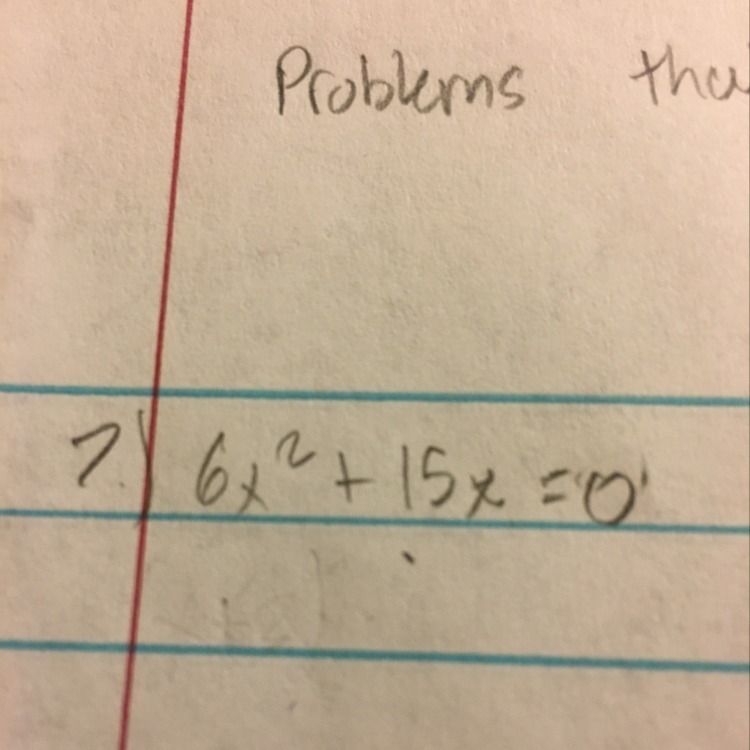 Problems
7.) 6x² + 15x = 0